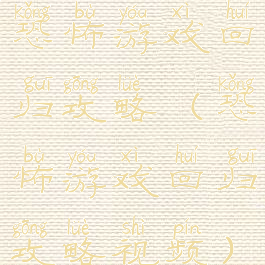 kǒng bù yóu xì huí
恐怖游戏回
guī gōng lüè kǒng
归攻略（恐
bù yóu xì huí guī
怖游戏回归
gōng lüè shì pín
攻略视频）